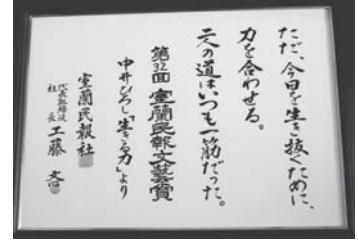 ただ、今日を生き抜くために、
力を合わせる。
二人の道はいつも一筋だった。
第32回 室蘭民報文藝賞
中井ひろし「生きる力」より
室蘭民報社
代表取締役
社長 工藤